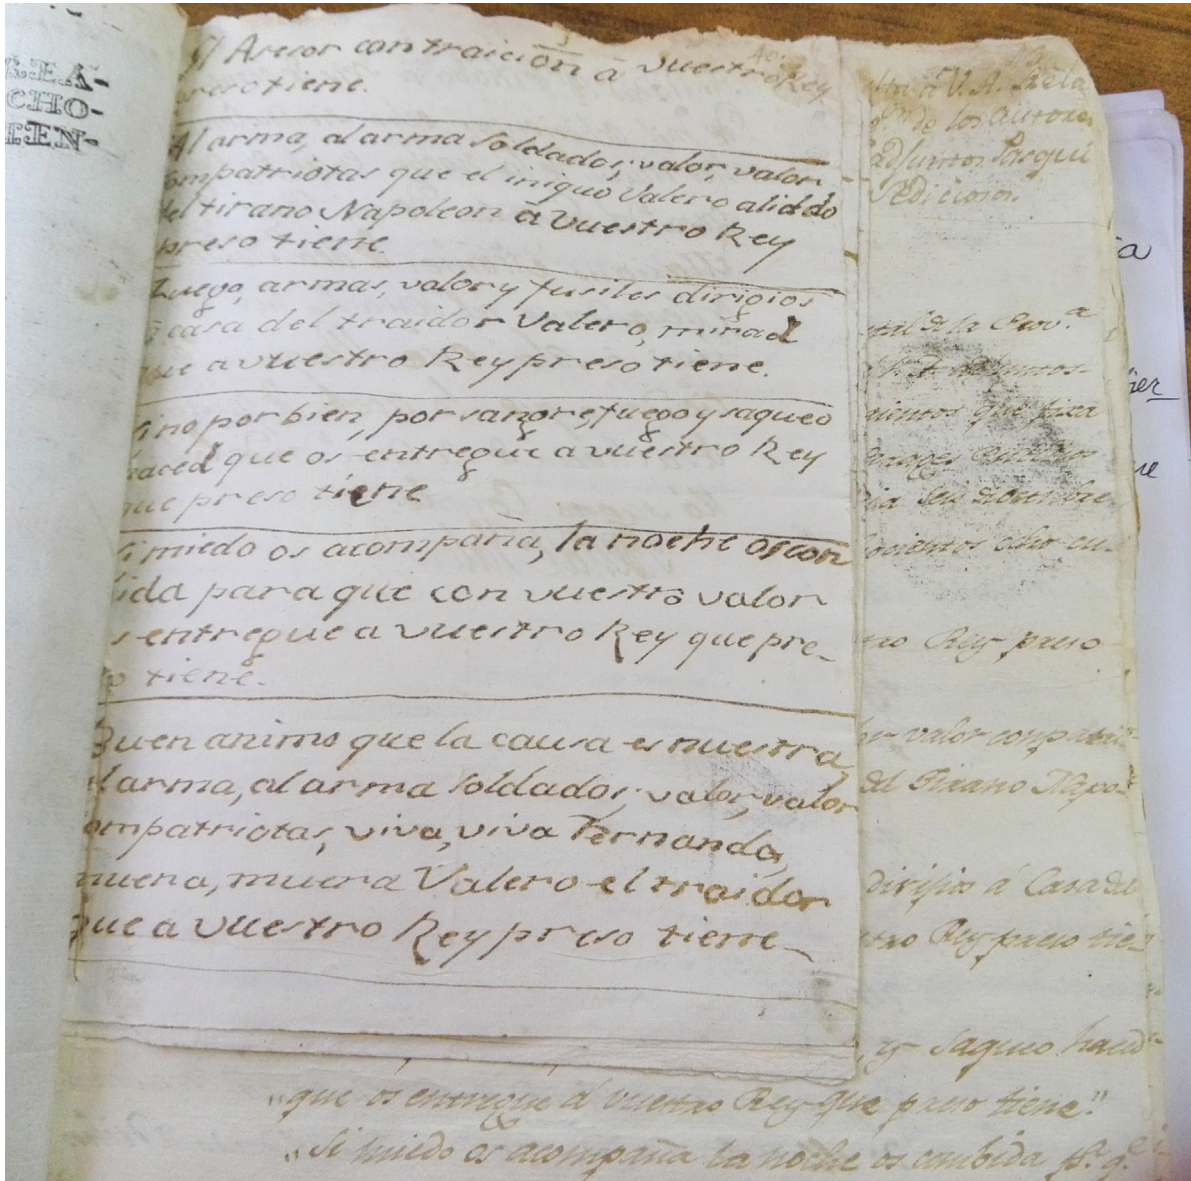 LEA-
CHO-
IEN-
El Asesor con traición â vuestro Rey
preso tiene.
Al arma, al arma soldados, valor, valor
ompatriotas que el iniquo Valero aliado
del tirano Napoleon â vuestro Rey
preso tiene.
Luego, armas, valor y fusiles dirigios
casa del traidor Valero, mirad
que a vuestro Rey preso tiene.
Si no por bien, por sangre, fuego y saqueo
haced que os entregue a vuestro Rey
que preso tiene
Si miedo os acompaña, la noche os con
bida para que con vuestro valor
os entregue a vuestro Rey que pre-
so tiene.
Buen animo que la causa es nuestra,
al arma, al arma soldados, valor, valor
ompatriotas, viva, viva Fernando,
muera, muera Valero el traidor
que a vuestro Rey preso tiene
de los autores
Pasqui
Sediciosos.
de la Prov.ª
que fixa
tro Rey preso
valor compatrio
del Tirano Napo-
dirigios á Casa del
tro Rey preso tie-
y saqueo haced
"que os entregue á vuestro Rey que preso tiene."
"Si miedo os acompaña la noche os combida p.ª q.e